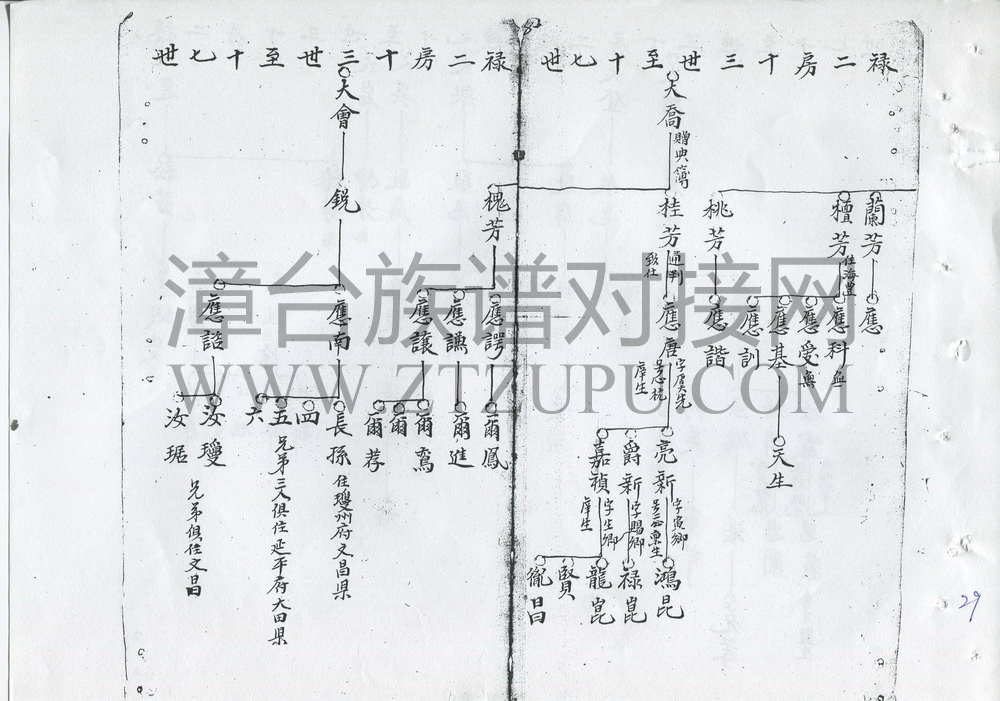 82
禄二房十三世至十七世
大喬
贈典簿
蘭芳
檀芳
住海豊
桃芳
桂芳
通判
致仕
槐芳
應
應科
無
應受
無
應基
應訓
應諧
應唐
字虞先
庠生
應諤
應謙
應讓
天生
亮新
字寅卿
爵新
字賜卿
嘉禎
字生卿
庠生
鴻昆
禄崑
龍崑
賢
胤昌
爾鳳
爾進
爾鸞
爾
爾孝
禄二房十三世至十七世
大會
銳
應南
應諮
長孫
住瓊州府文昌県
四
五
六
兄弟三人俱住延平府大田県
汝瓊
汝琚
兄弟俱住文昌
29
漳台族谱对接网
WWW.ZTZUPU.COM